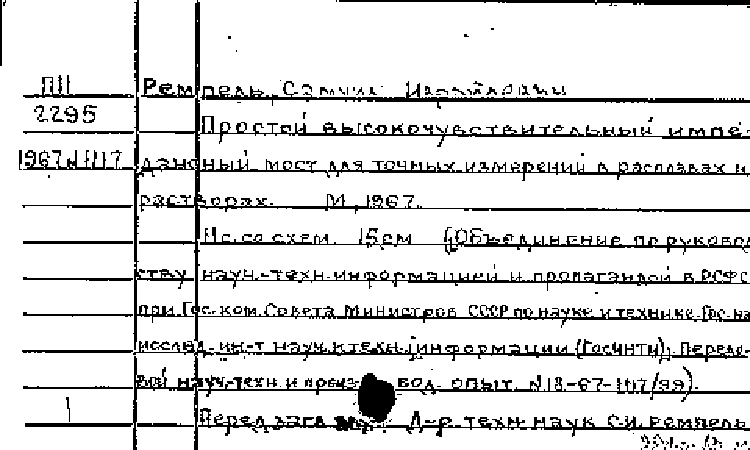 ПII Ремпель, Самуил
2295
Простой высокочувствительный импе-
1967 дансный мост для точных измерений в расплавах и
растворах. М., 1967.
Ис. со схем. 15см (Объединение по руковод
ству науч.-техн. информацией и пропагандой в РСФС
при Гос. ком. Совета Министров СССР по науке и технике. Гос. на
исслед. ин-т науч. и техн. информации (ГосИНТИ). Передо-
вой науч.-техн. и произвед. опыт. №18-67-1117/99).
1 Перед загл. Д-р техн. наук С.И. Ремпель